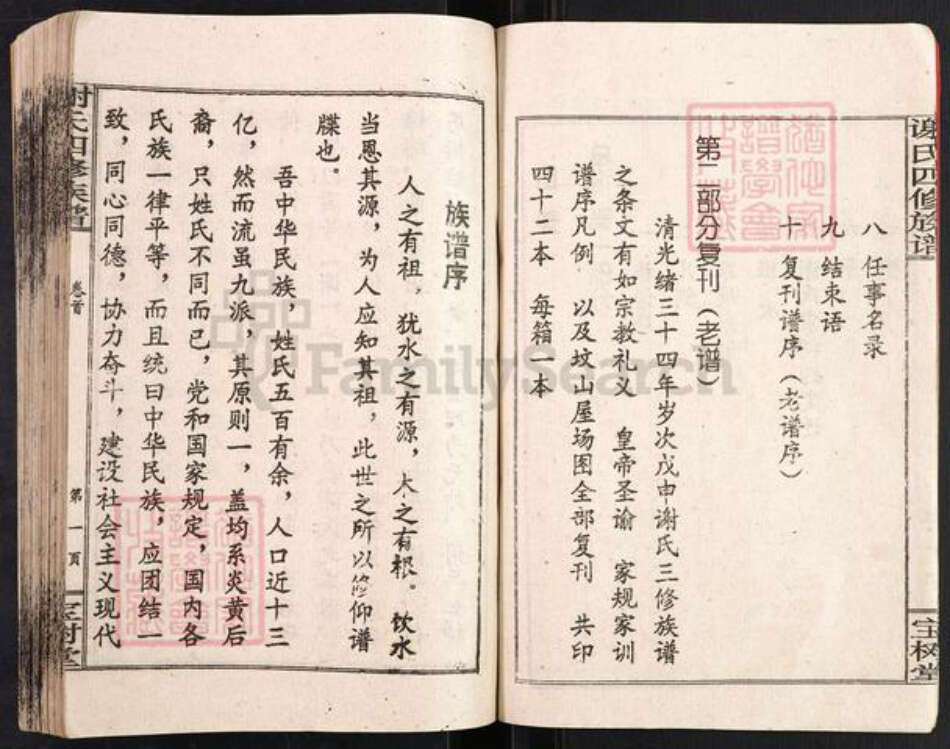 谢氏四修族谱
宝树堂
八 任事名录
九 结束语
十 复刊谱序（老谱序）
第二部分复刊（老谱）
清光绪三十四年岁次戊申谢氏三修族谱
之条文有如宗教礼义 皇帝圣谕 家规家训
谱序凡例 以及坟山屋场图全部复刊 共印
四十二本 每箱一本
族谱序
人之有祖，犹水之有源，木之有根。饮水
当思其源，为人应知其祖，此世之所以修仰谱
牒也。
吾中华民族，姓氏五百有余，人口近十三
亿，然而流虽九派，其原则一，盖均系炎黄后
裔，只姓氏不同而已，党和国家规定，国内各
氏族一律平等，而且统曰中华民族，应团结一
致，同心同德，协力奋斗，建设社会主义现代
谢氏四修族谱
卷首
第一页
宝树堂
FamilySearch